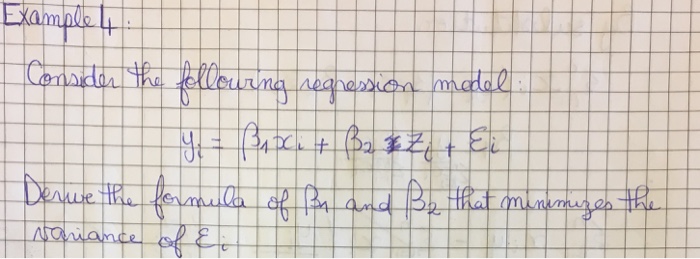 Example 4:
Consider the following regression model:
yᵢ = β₁xᵢ + β₂ zᵢ + Ɛᵢ
Derive the formula of β₁ and β₂ that minimizes the
variance of Ɛᵢ